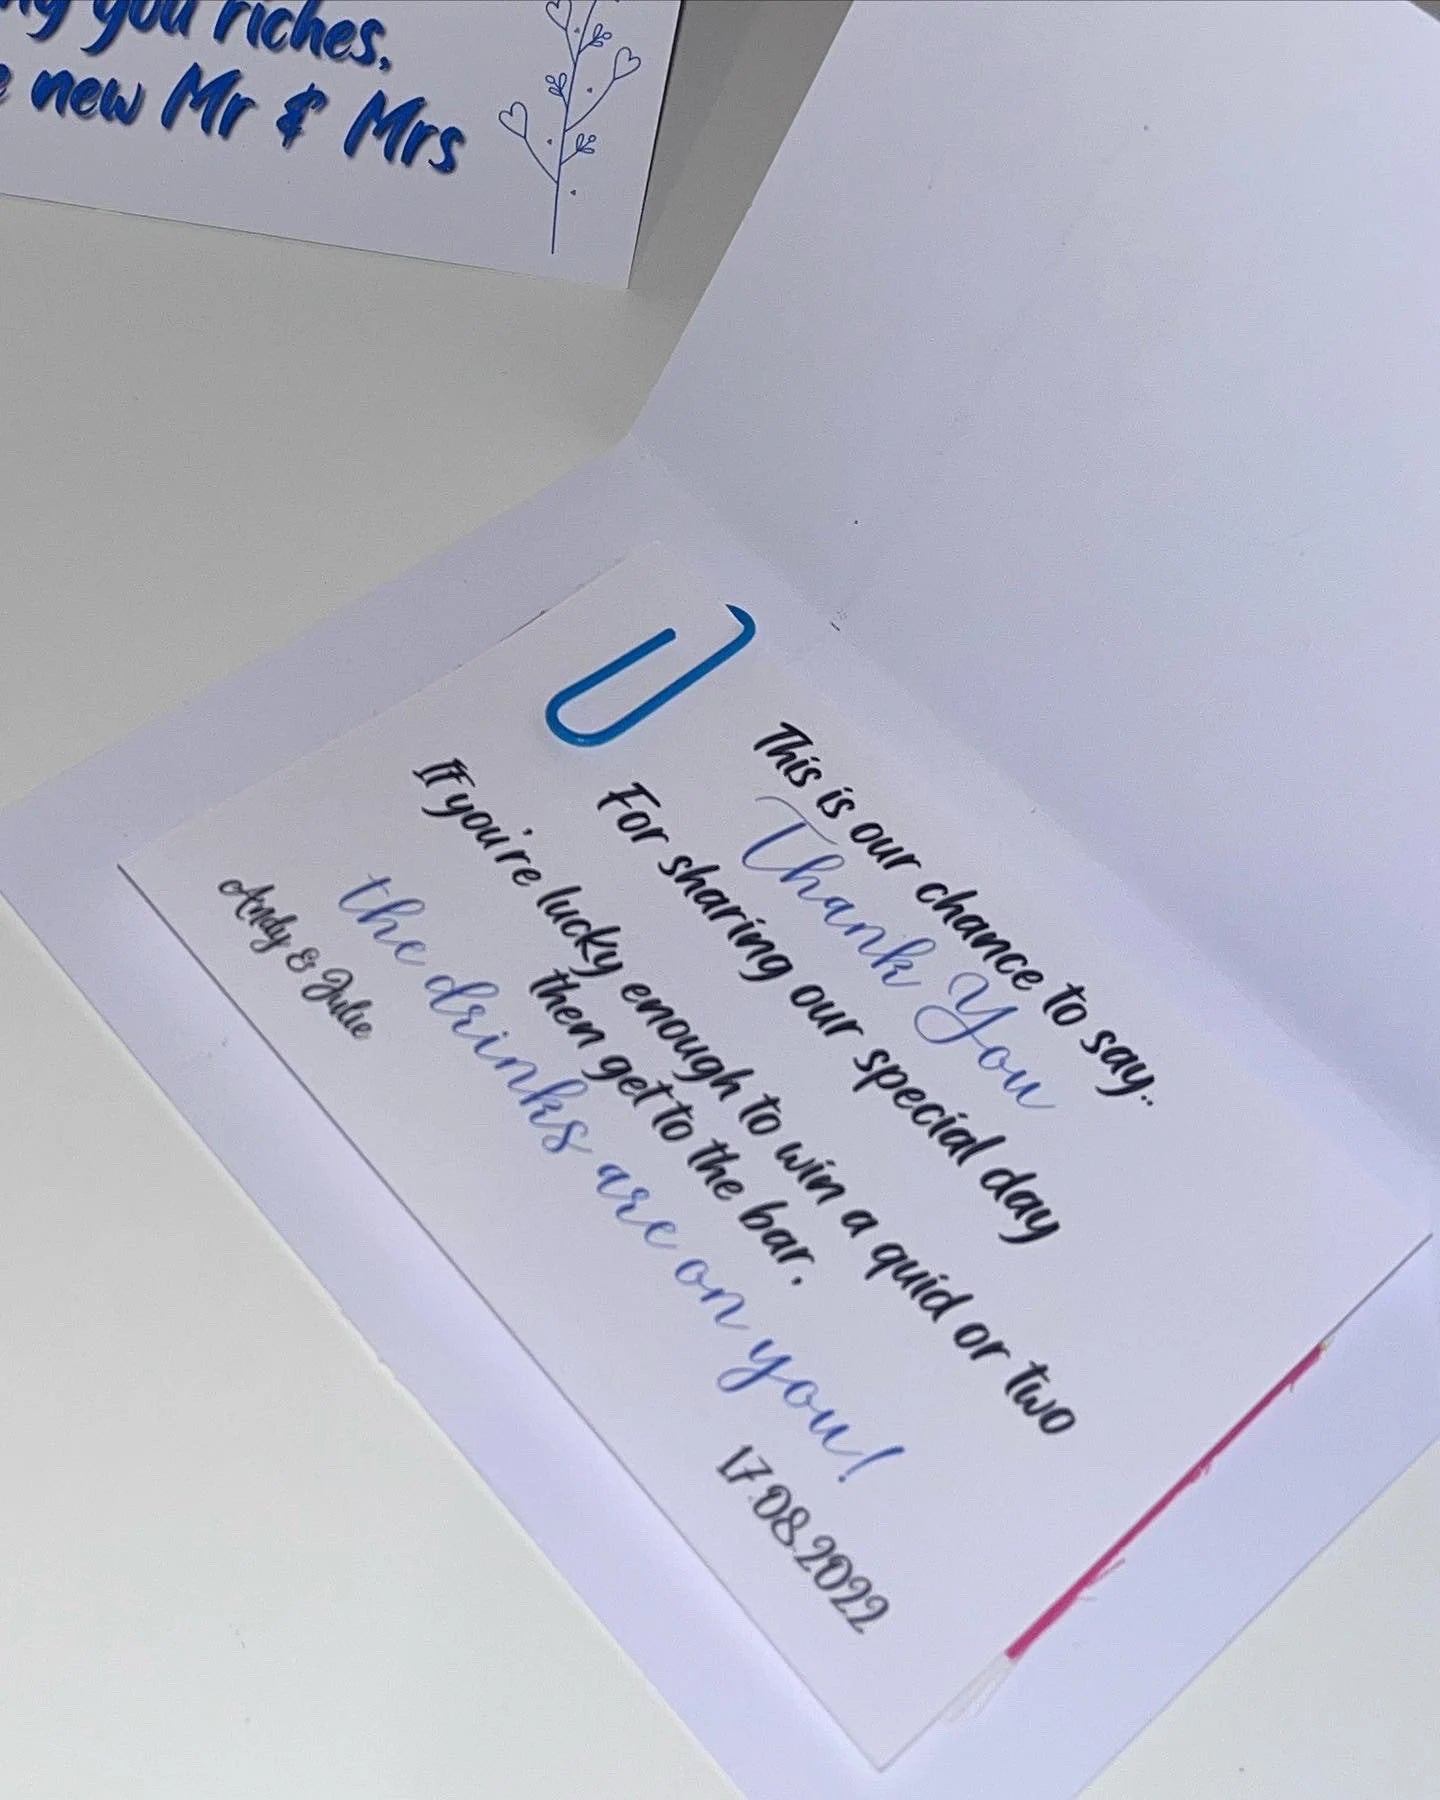 you riches,
new Mr & Mrs
This is our chance to say..
Thank You
For sharing our special day
If you're lucky enough to win a quid or two
then get to the bar.
the drinks are on you!
Andy & Julie
17.08.2022